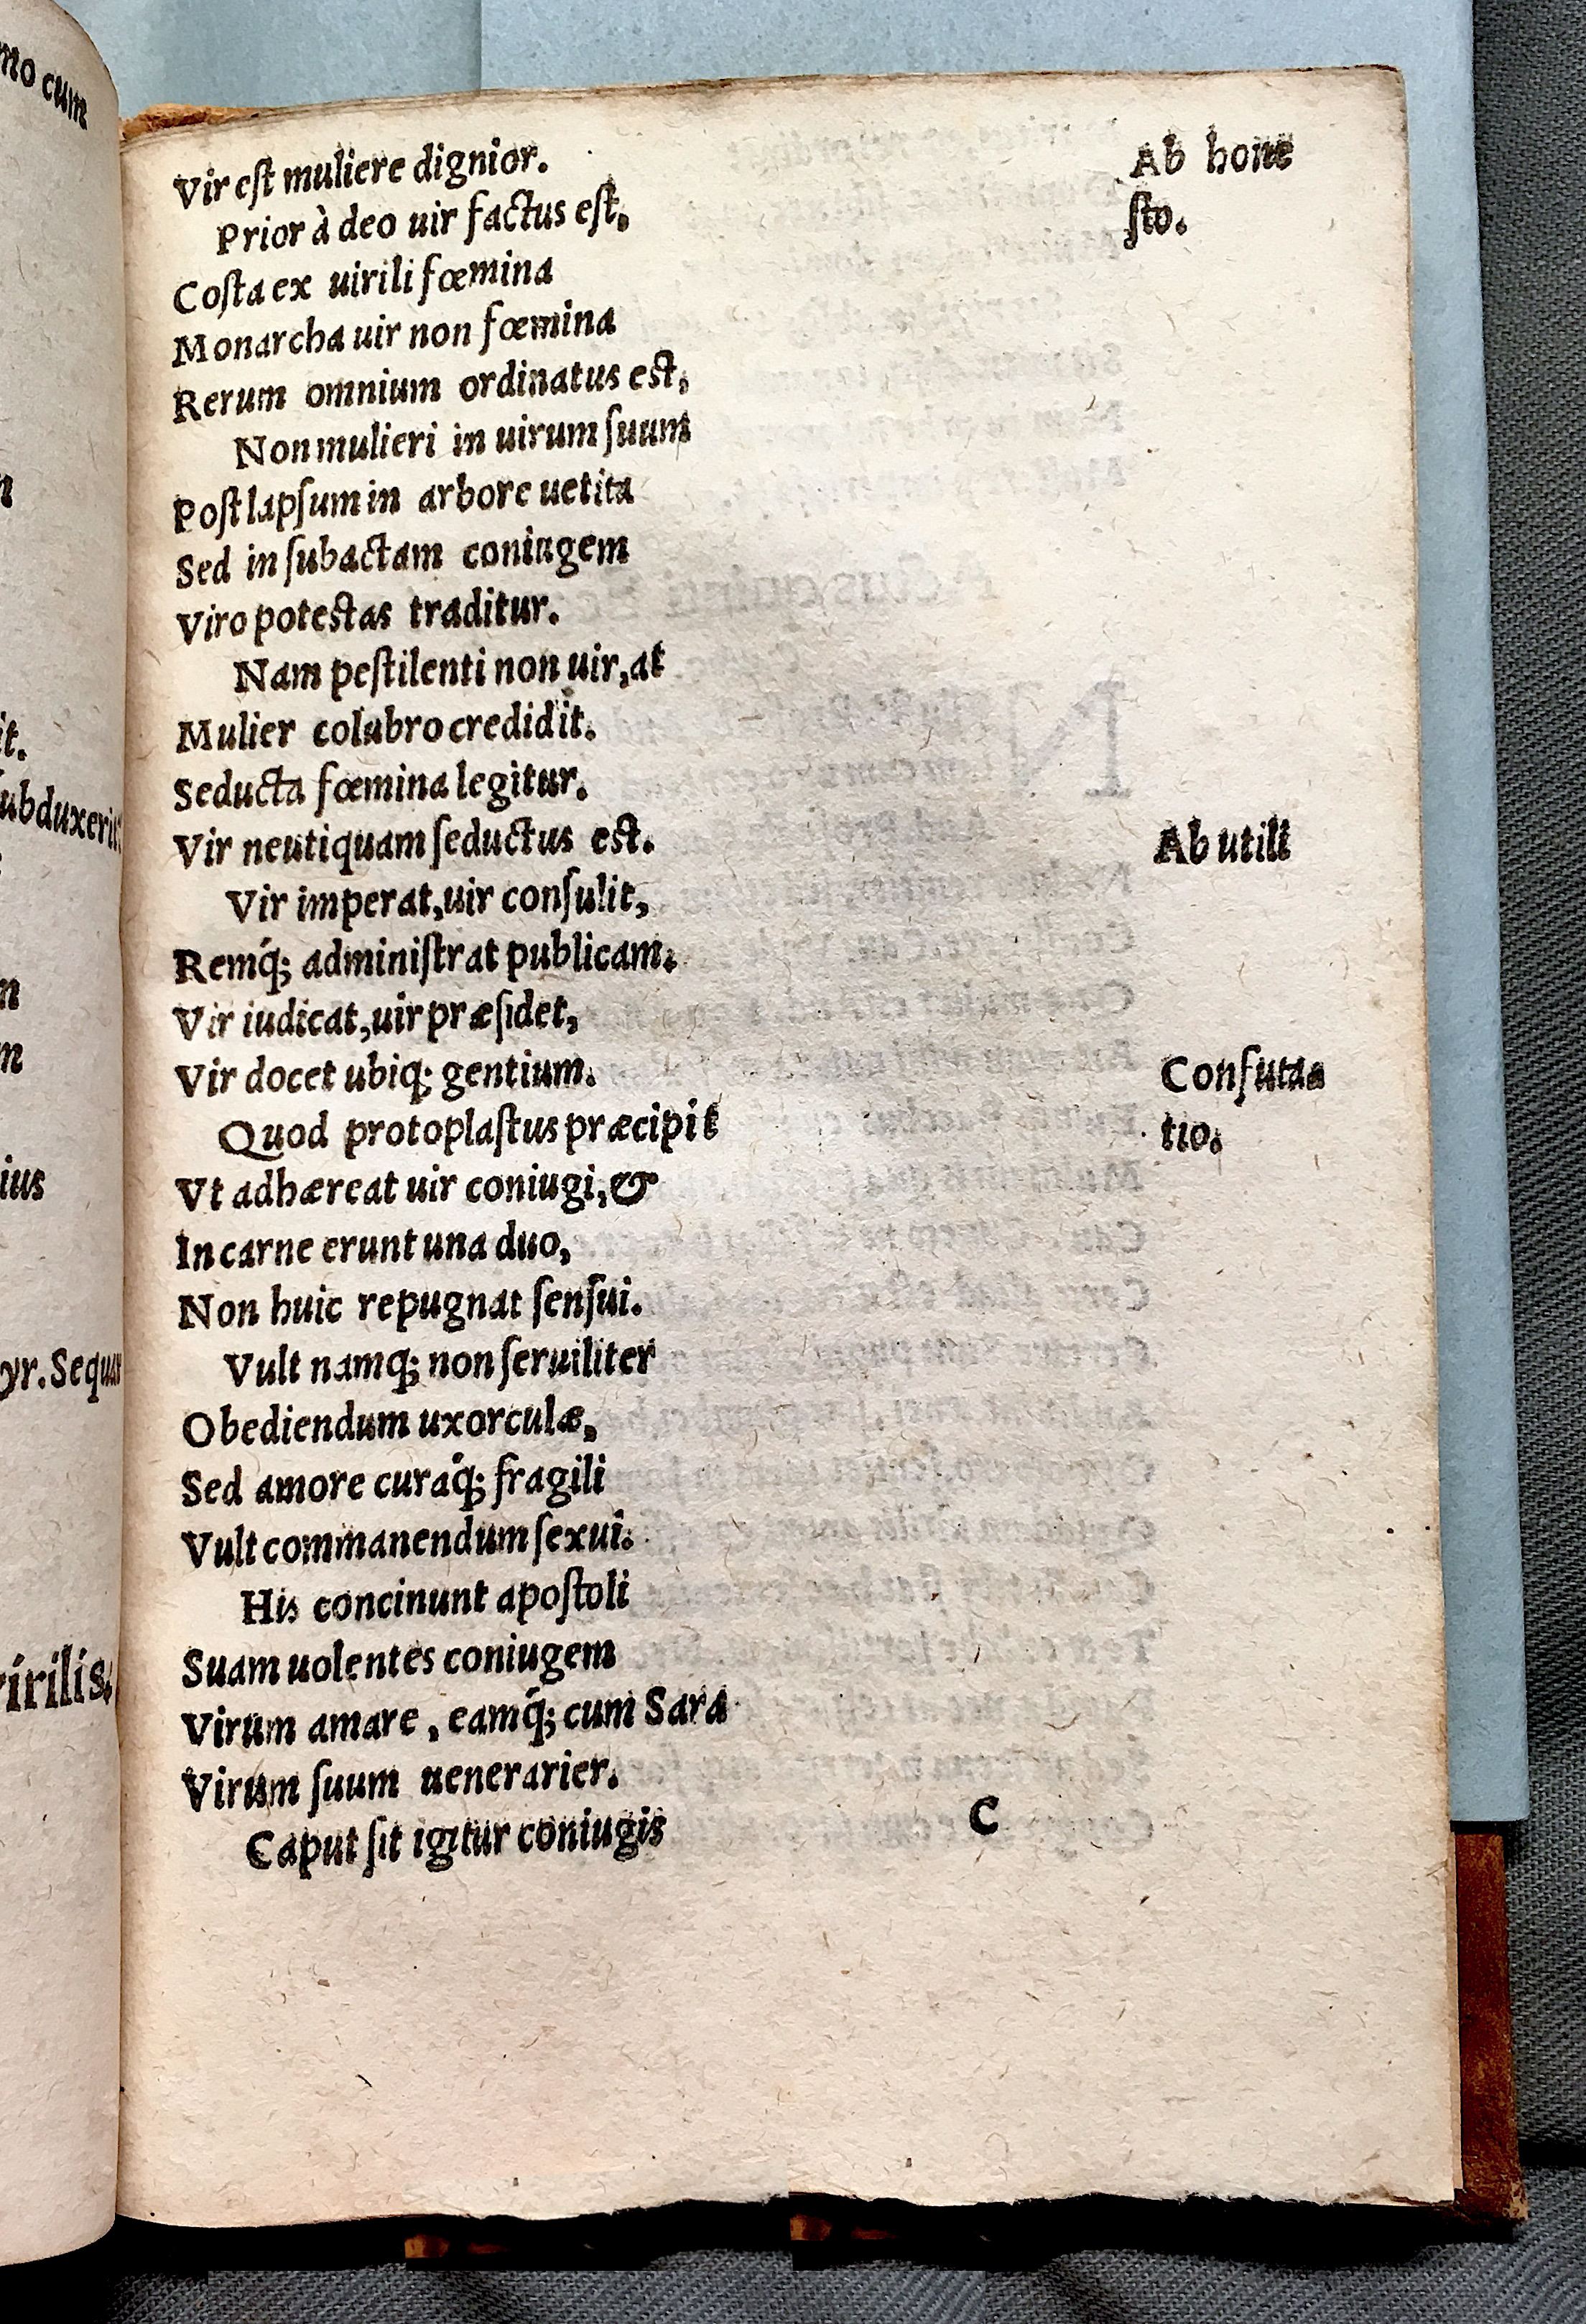 Vir eſt muliere dignior.
Prior à deo uir factus eſt,
Coſta ex uirili fœmina
Monarcha uir non fœmina
Rerum omnium ordinatus eſt,
Non mulieri in uirum ſuum
Poſt lapſum in arbore uetita
Sed in ſubactam coniugem
Viro poteſtas traditur.
Nam peſtilenti non uir, at
Mulier colubro credidit.
Seducta fœmina legitur.
Vir neutiquam ſeductus eſt.
Vir imperat, uir conſulit,
Remq́; adminiſtrat publicam.
Vir iudicat, uir præſidet,
Vir docet ubiq; gentium.
Quod protoplaſtus præcipit
Vt adhæreat uir coniugi, &
In carne erunt una duo,
Non huic repugnat ſenſui.
Vult namq; non ſeruiliter
Obediendum uxorculæ,
Sed amore curaq́; fragili
Vult commanendum ſexui.
His concinunt apoſtoli
Suam uolentes coniugem
Virum amare, eamq́; cum Sara
Virum ſuum uenerarier.
Caput ſit igitur coniugis
C
Ab hone
ſto.
Ab utili
Confuta
tio.
mo cum
it.
ubduxerit
ius
yr. Sequar
irilis.